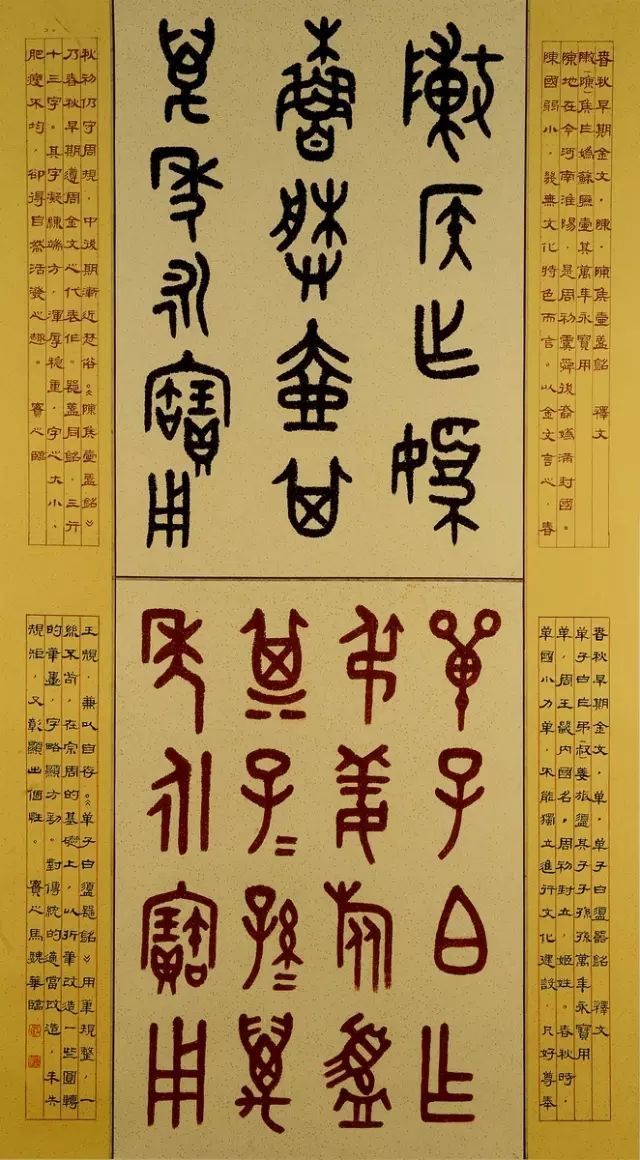 春秋早期金文,陳,陳侯壺蓋銘 釋文
敶(陳)侯乍媯蘇媵壺其萬年永寶用
陳地在今河南淮陽,是周初虞舜後裔媯滿封國。
陳國弱小,幾無文化特色而言。以金文言之,春
敶侯乍媯
蘇媵壺其
萬年永寶用
秋初仍守周規,中後期漸近楚俗。《陳侯壺蓋銘》
乃春秋早期遵周金文之代表作。器蓋同銘,三行
十三字。其字凝練端方,渾厚穩重,字之大小、
肥瘦不均,卻得自然活潑之趣。 賓之臨
春秋早期金文,單,單子白盨器銘 釋文
單子白乍弔(叔)姜旅盨其子子孫孫萬年永寶用
單,周王畿内國名,周初封立,姬姓。春秋時,
單國小力單,不能獨立進行文化建設,只好尊奉
單子白乍
弔姜旅盨
其子=孫=萬
年永寶用
王規,兼以自存。《單子白盨器銘》用筆規整,一
絲不苟,在宗周的基礎上,以折筆改造一些圓轉
的筆畫,字略顯方勁。對傳統的適當改造,未失
規矩,又彰顯出個性。 賓之馬騁華臨